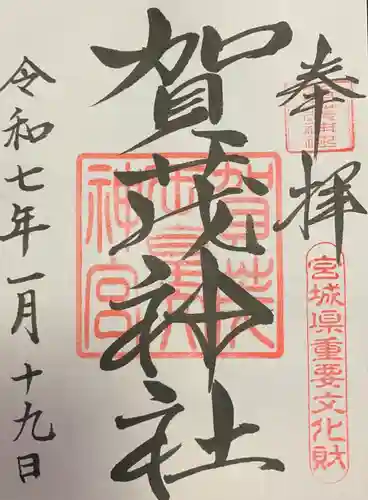 奉拝
宮城県重要文化財
賀茂神社
令和七年一月十九日